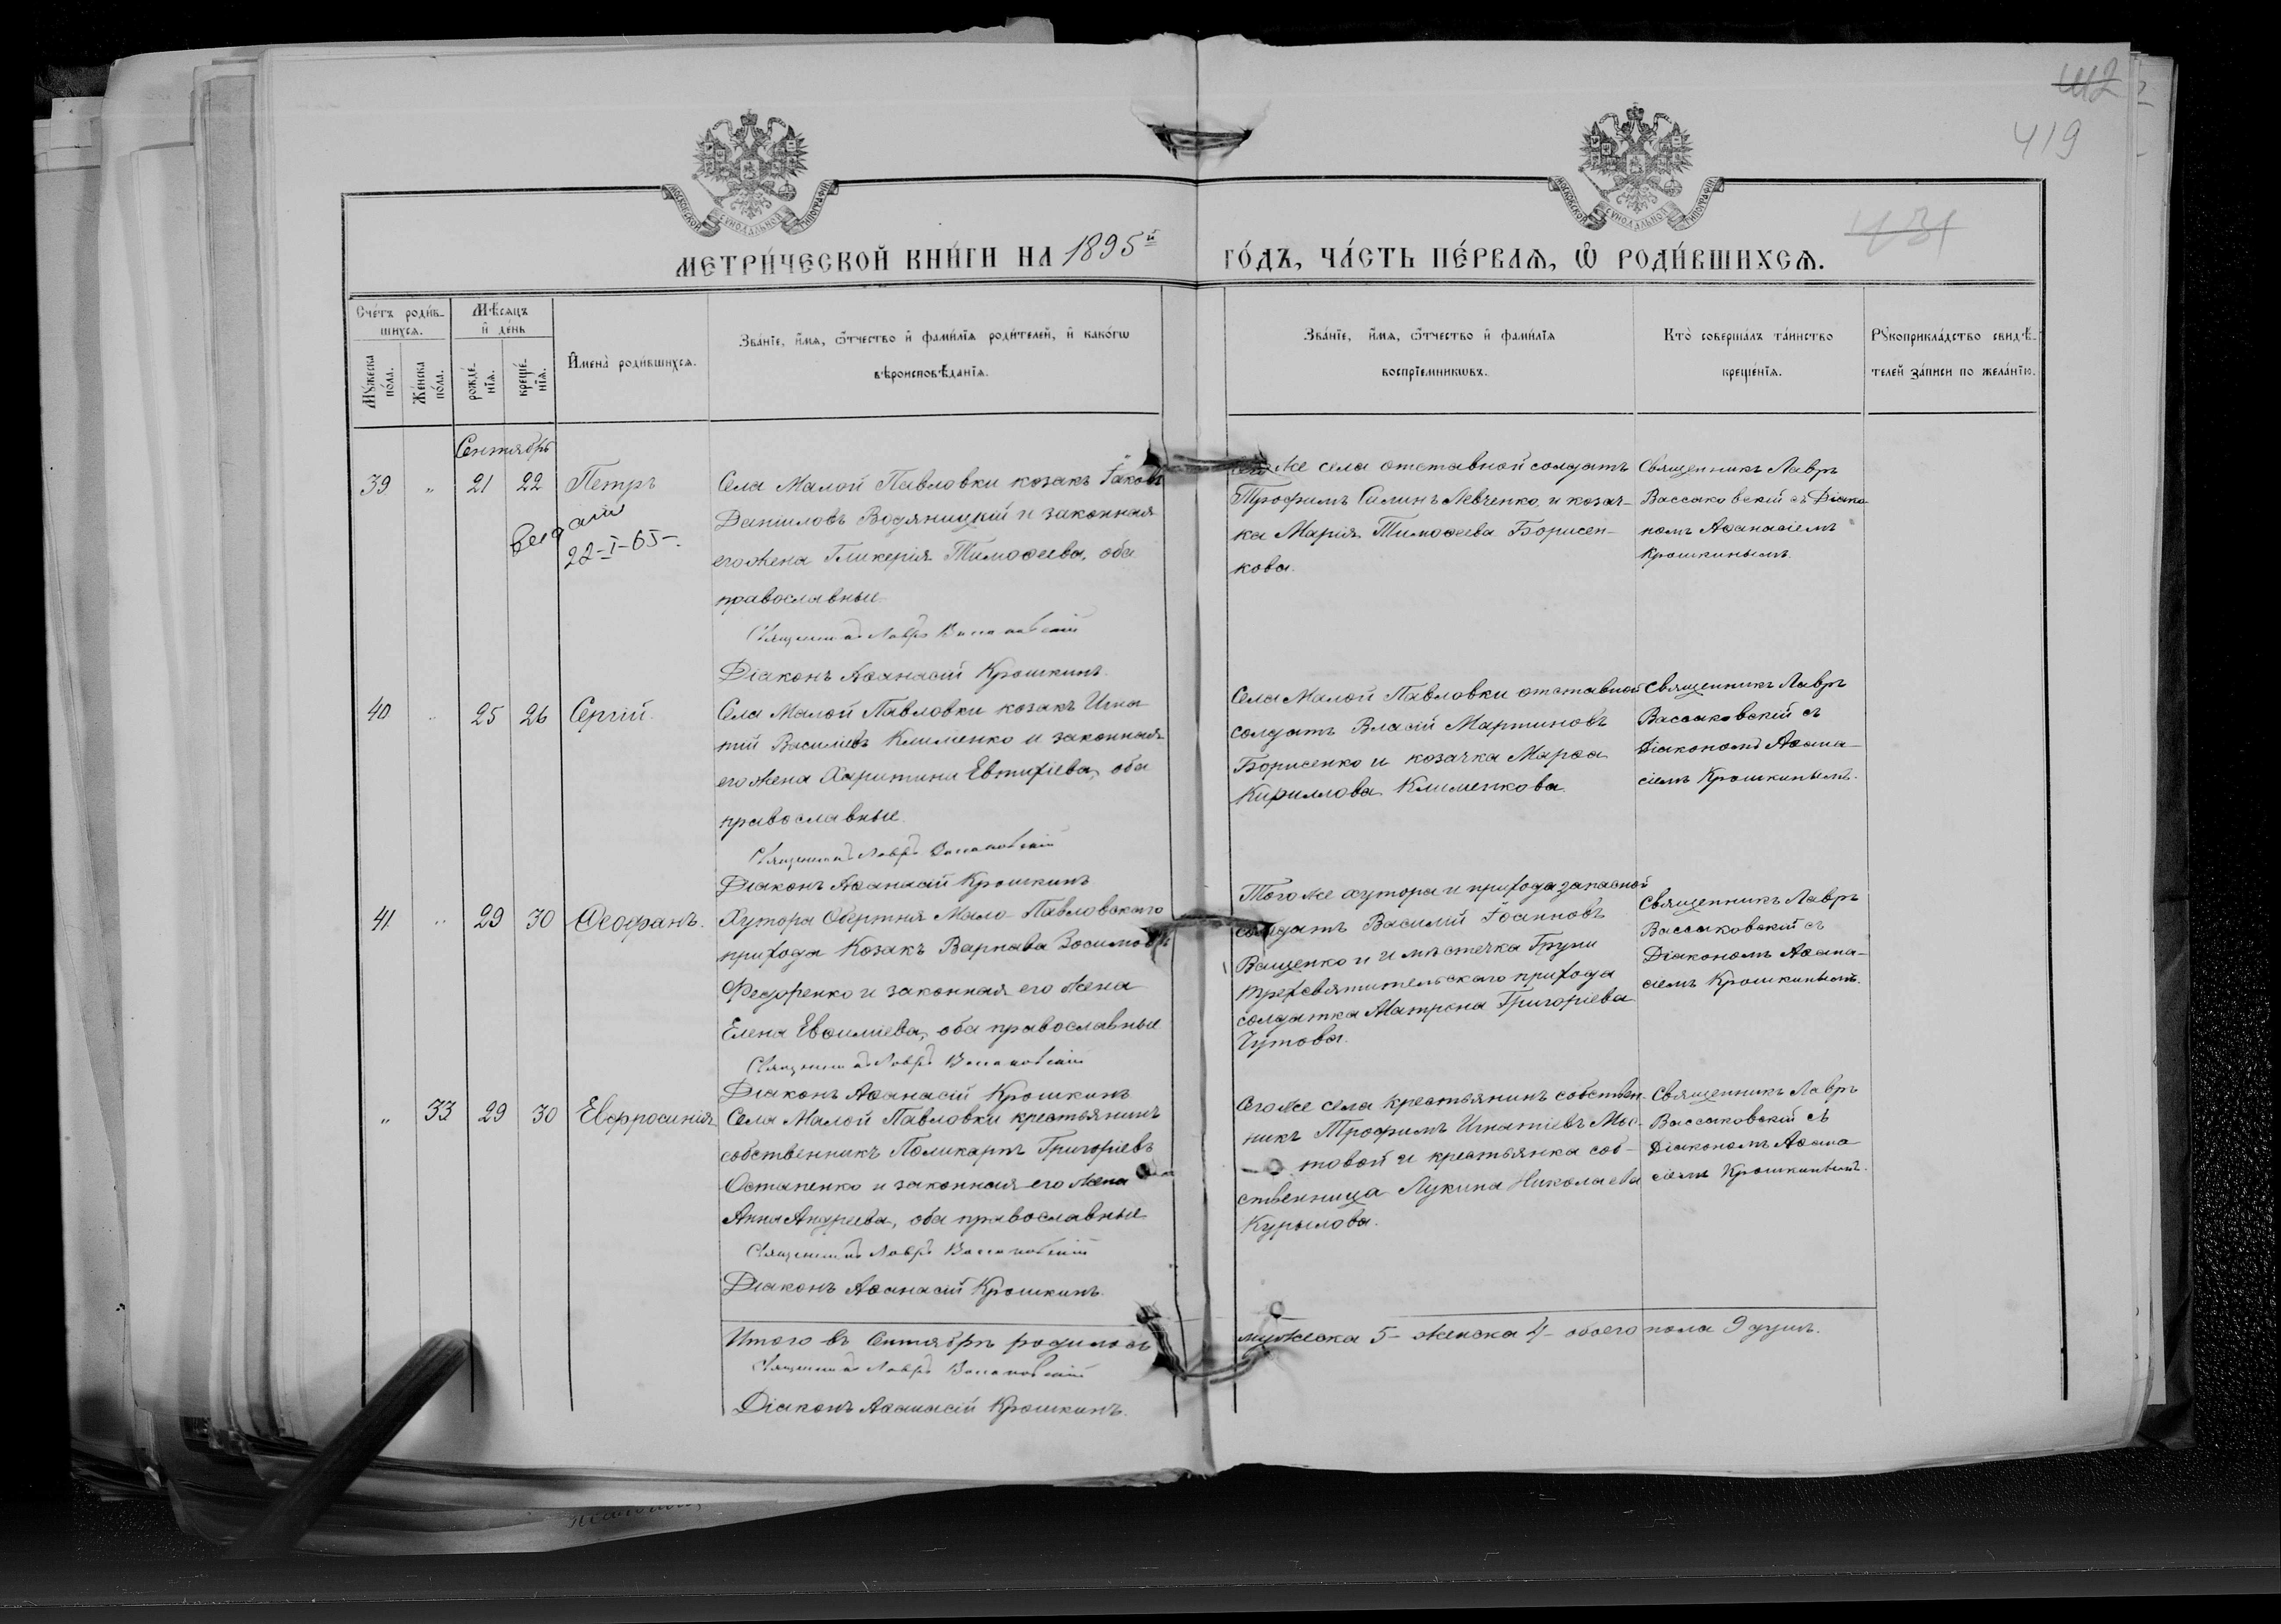 412
419
431
МОСКОВСКОЙ СУНОДАЛЬНОЙ ТИПОГРАФІИ
МОСКОВСКОЙ СУНОДАЛЬНОЙ ТИПОГРАФІИ
МЕТРИ́ЧЕСКОЙ КНИ́ГИ НА 1895й ГО́ДЪ, ЧА́СТЬ ПЕ́РВАѦ, Ѡ РОДИ́ВШИХСѦ.
Сче́тъ роди́в-
шихсѧ.
Мꙋ́жеска по́ла.
Же́нска по́ла.
Мѣ́сѧцъ
и де́нь
рожде́-
нїѧ.
креще́-
нїѧ.
Имена̀ роди́вшихсѧ.
Зва́нїе, и́мѧ, ѻ́тчество и фами́лїѧ роди́телей, и како́гѡ
вѣроисповѣ́данїѧ.
Зва́нїе, и́мѧ, ѻ́тчество и фами́лїѧ
воспрїе́мникѡвъ.
Кто̀ соверша́лъ та́инство
креще́нїѧ.
Рꙋкоприкла́дство свидѣ́-
телей за́писи по жела́нїю.
Сентябрь
39 " 21 22 Петръ
Видани
22-I-65-.
Села Малой Павловки козакъ Іаковъ
Даніиловъ Водяницкій и законная
его жена Гликерія Тимоѳеева, оба
православные
Священникъ Лавръ Вассаковскій
Діаконъ Аѳанасій Крошкинъ.
Того же села отставной солдатъ
Трофимъ Силинъ Левченко, и козач-
ка Марія Тимоѳеева Борисен-
кова.
Священникъ Лавръ
Вассаковскій съ Діако
номъ Аѳанасіемъ
Крошкинымъ.
40 " 25 26 Сергій.
Села Малой Павловки козакъ Игна
тій Василіевъ Клименко и законная
его жена Харитина Евтихіева, оба
православные.
Священникъ Лавръ Вассаковскій
Діаконъ Аѳанасій Крошкинъ
Села Малой Павловки отставной
солдатъ Власій Мартиновъ
Борисенко и козачка Марѳа
Кириллова Клименкова.
Священникъ Лавръ
Вассаковскій съ
Діакономъ Аѳана-
сіемъ Крошкинымъ.
41 " 29 30 Ѳеофанъ.
Хутора Обертня Мало-Павловскаго
прихода Козакъ Варнава Зосимовъ
Федоренко и законная его жена
Елена Евѳиміева, оба православные
Священникъ Лавръ Вассаковскій
Діаконъ Аѳанасій Крошкинъ
Того же хутора и прихода запасной
солдатъ Василій Іоанновъ
Ващенко и и мѣстечка Груни
Трехсвятительскаго прихода
солдатка Матрона Григоріева
Чутова.
Священникъ Лавръ
Вассаковскій съ
Діакономъ Аѳана-
сіемъ Крошкинымъ.
" 33 29 30 Евфросинія
Села Малой Павловки крестьянинъ
собственникъ Поликарпъ Григоріевъ
Остапенко и законная его жена
Анна Андреева, оба православные
Священникъ Лавръ Вассаковскій
Діаконъ Аѳанасій Крошкинъ.
Сего же села крестьянинъ собствен-
никъ Трофимъ Игнатіевъ Мос-
товой и крестьянка соб-
ственница Лукина Николаева
Курылова.
Священникъ Лавръ
Вассаковскій съ
Діакономъ Аѳана
сіемъ Крошкинымъ.
Итого въ Сентябрѣ родилось мужеска 5- женска 4- обоего пола 9 душъ.
Священникъ Лавръ Вассаковскій
Діаконъ Аѳанасій Крошкинъ.